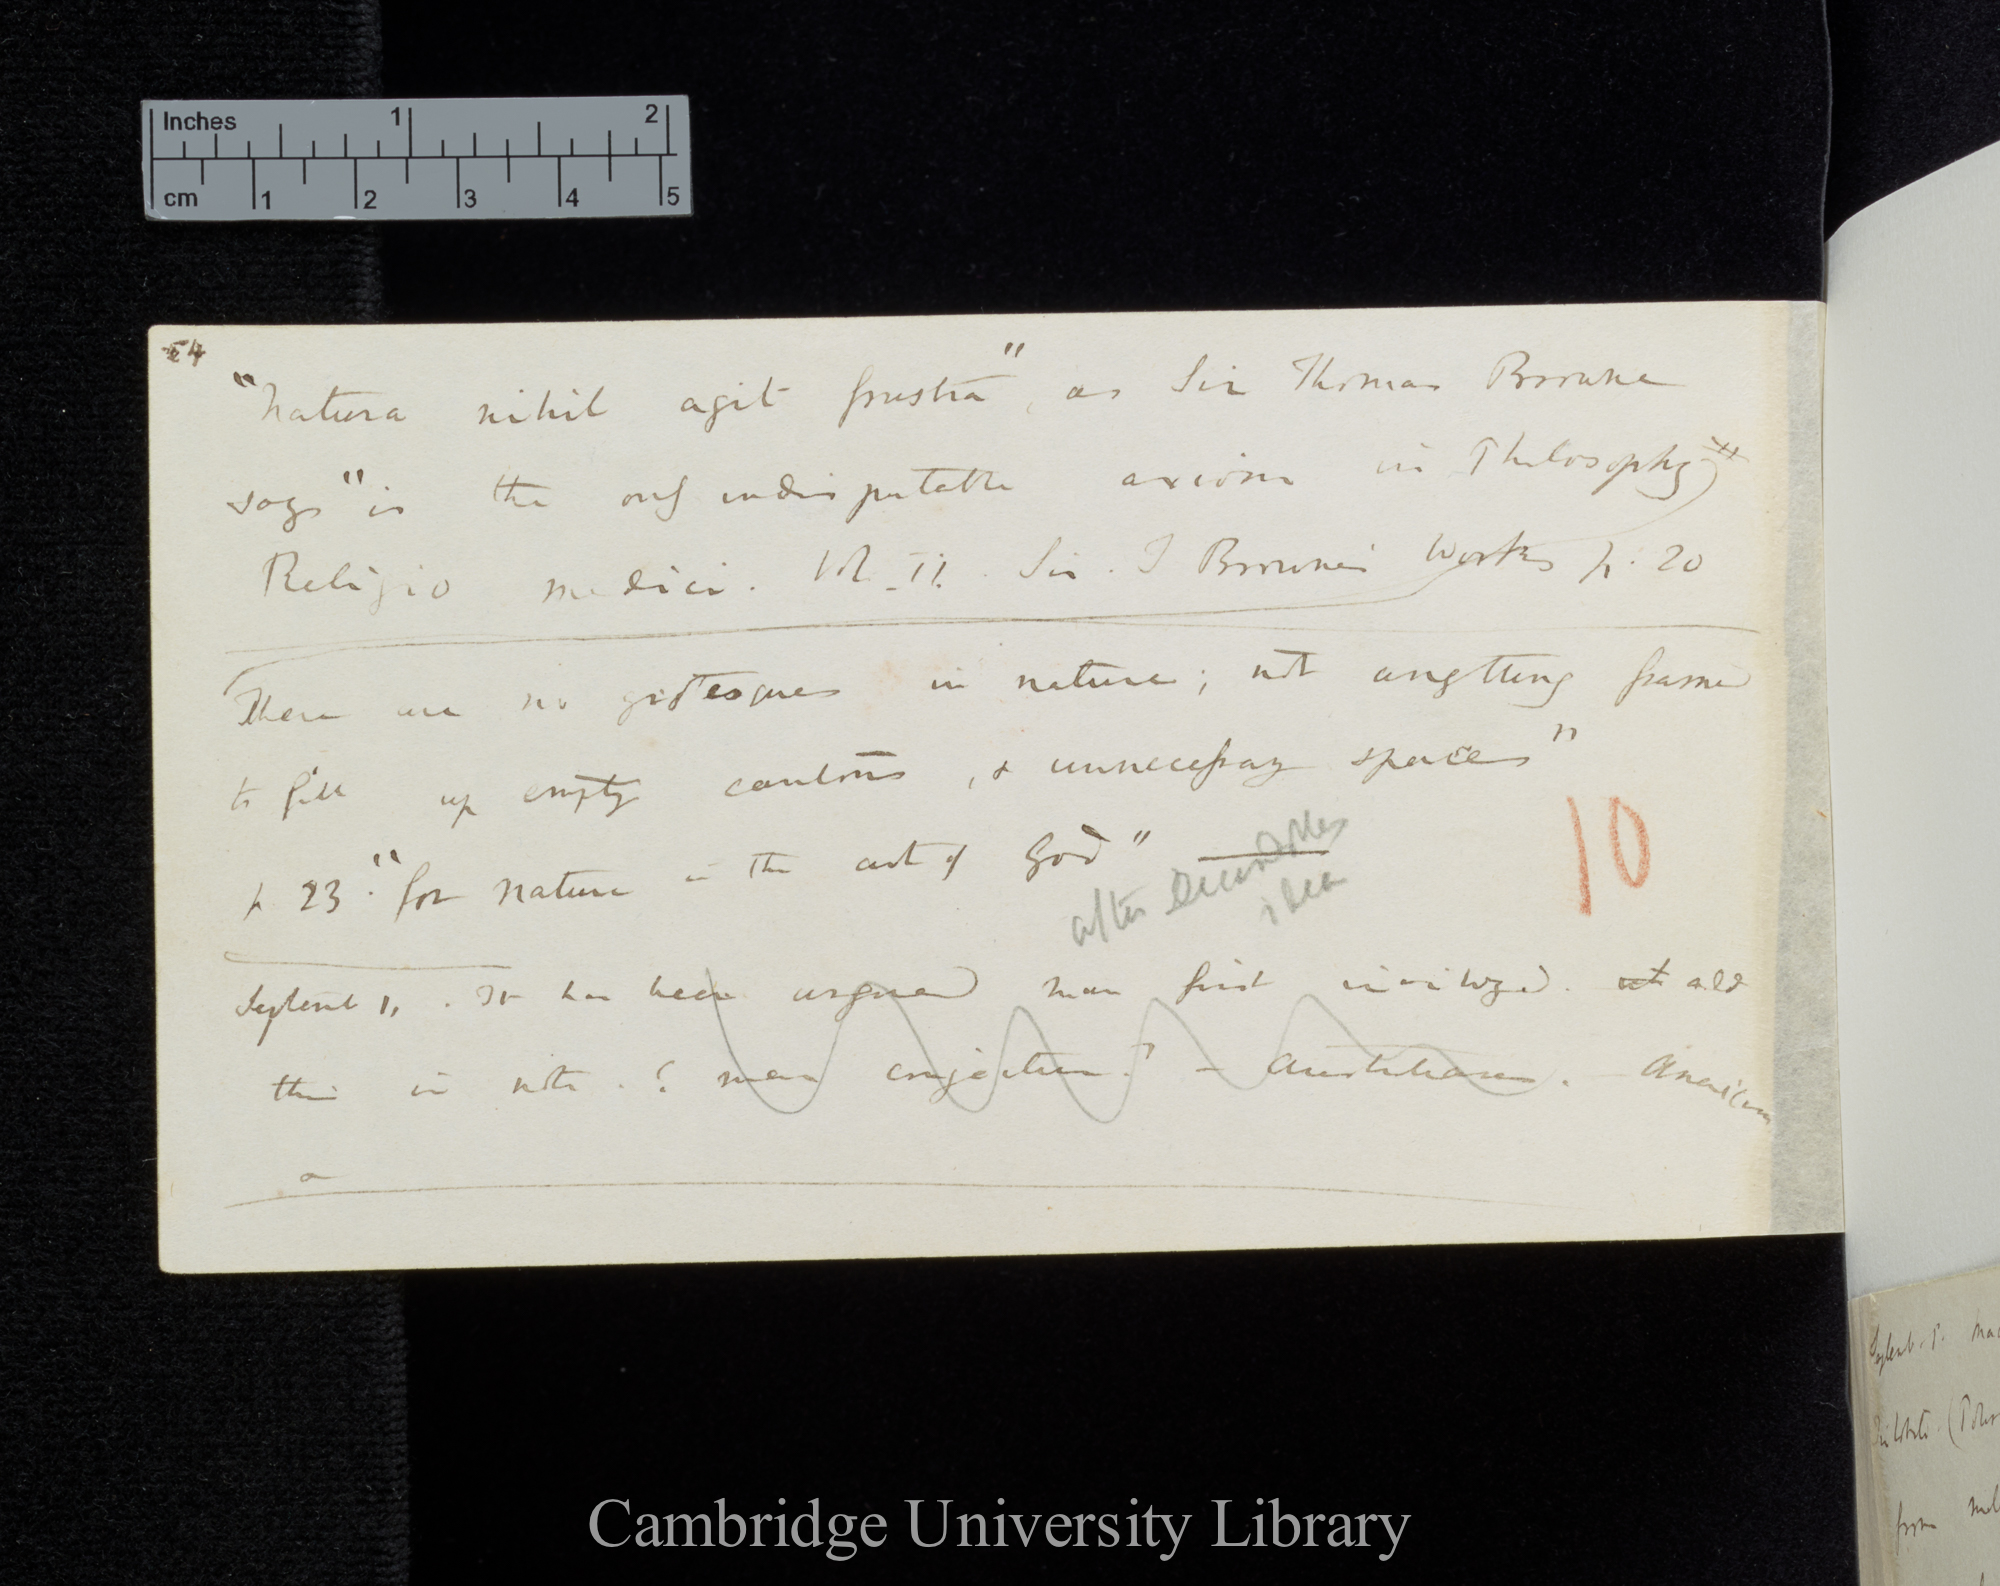 Inches 1 2
cm 1 2 3 4 5
54
"Natura nihil agit frustra", as Sir Thomas Browne
says "is the only indisputable axiom in Philosophy"
Religio medici. Vol. II. Sir. T Browne's Works p. 20
There are no grotesques in nature; not anything framed
to fill up empty cantons, & unnecessary spaces"
p 23. "for nature is the art of God"
after Decandolles
idea
10
Septemb 11. It has been argued man first civilized. add
this in note. ? mere conjecture? — Australians. — Americans
Cambridge University Library
Septemb.
from